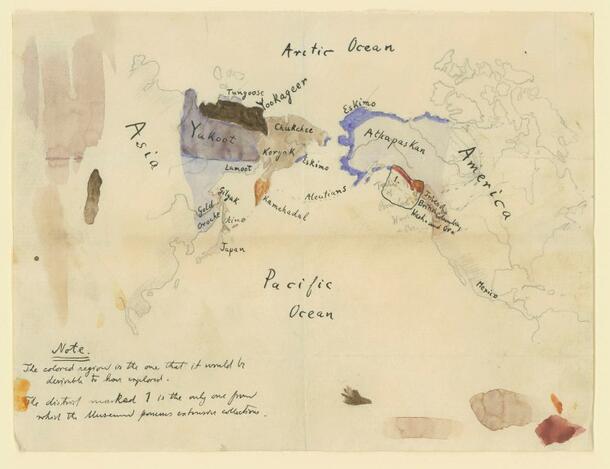 Arctic Ocean
Tungoose
Yookageer
Eskimo
Yakoot
Chukchee
Athapaskan
Asia
America
Koryak
Eskimo
Lamoot
Aleutians
1.
Kamchadal
Gilyak
Gold
Oroche
Aino
Tribes of
British Columbia,
Wash. and Ore.
Japan
Pacific
Ocean
Mexico
Note.
The colored region is the one that it would be
desirable to have explored.
The district marked 1 is the only one from
which the Museum possesses extensive collections.